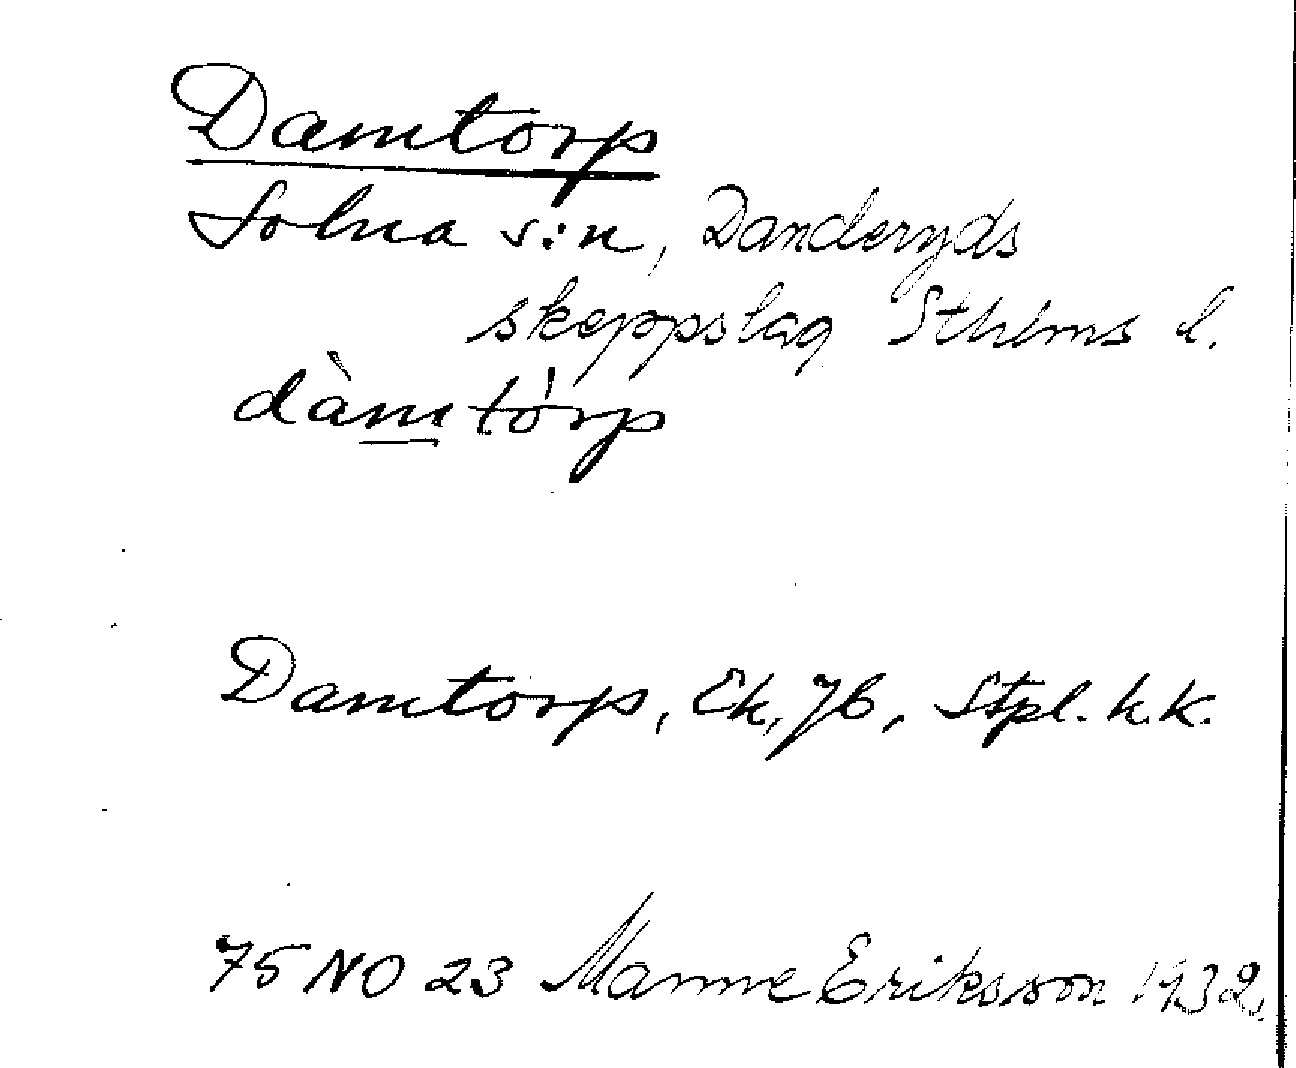 Damtorp
Solna s:n, Danderyds
skeppslag Sthlms l.
dàmtórp
Damtorp, Ek, Jb, Stpl. h.k.
75 NO 23 Manne Eriksson 1932.